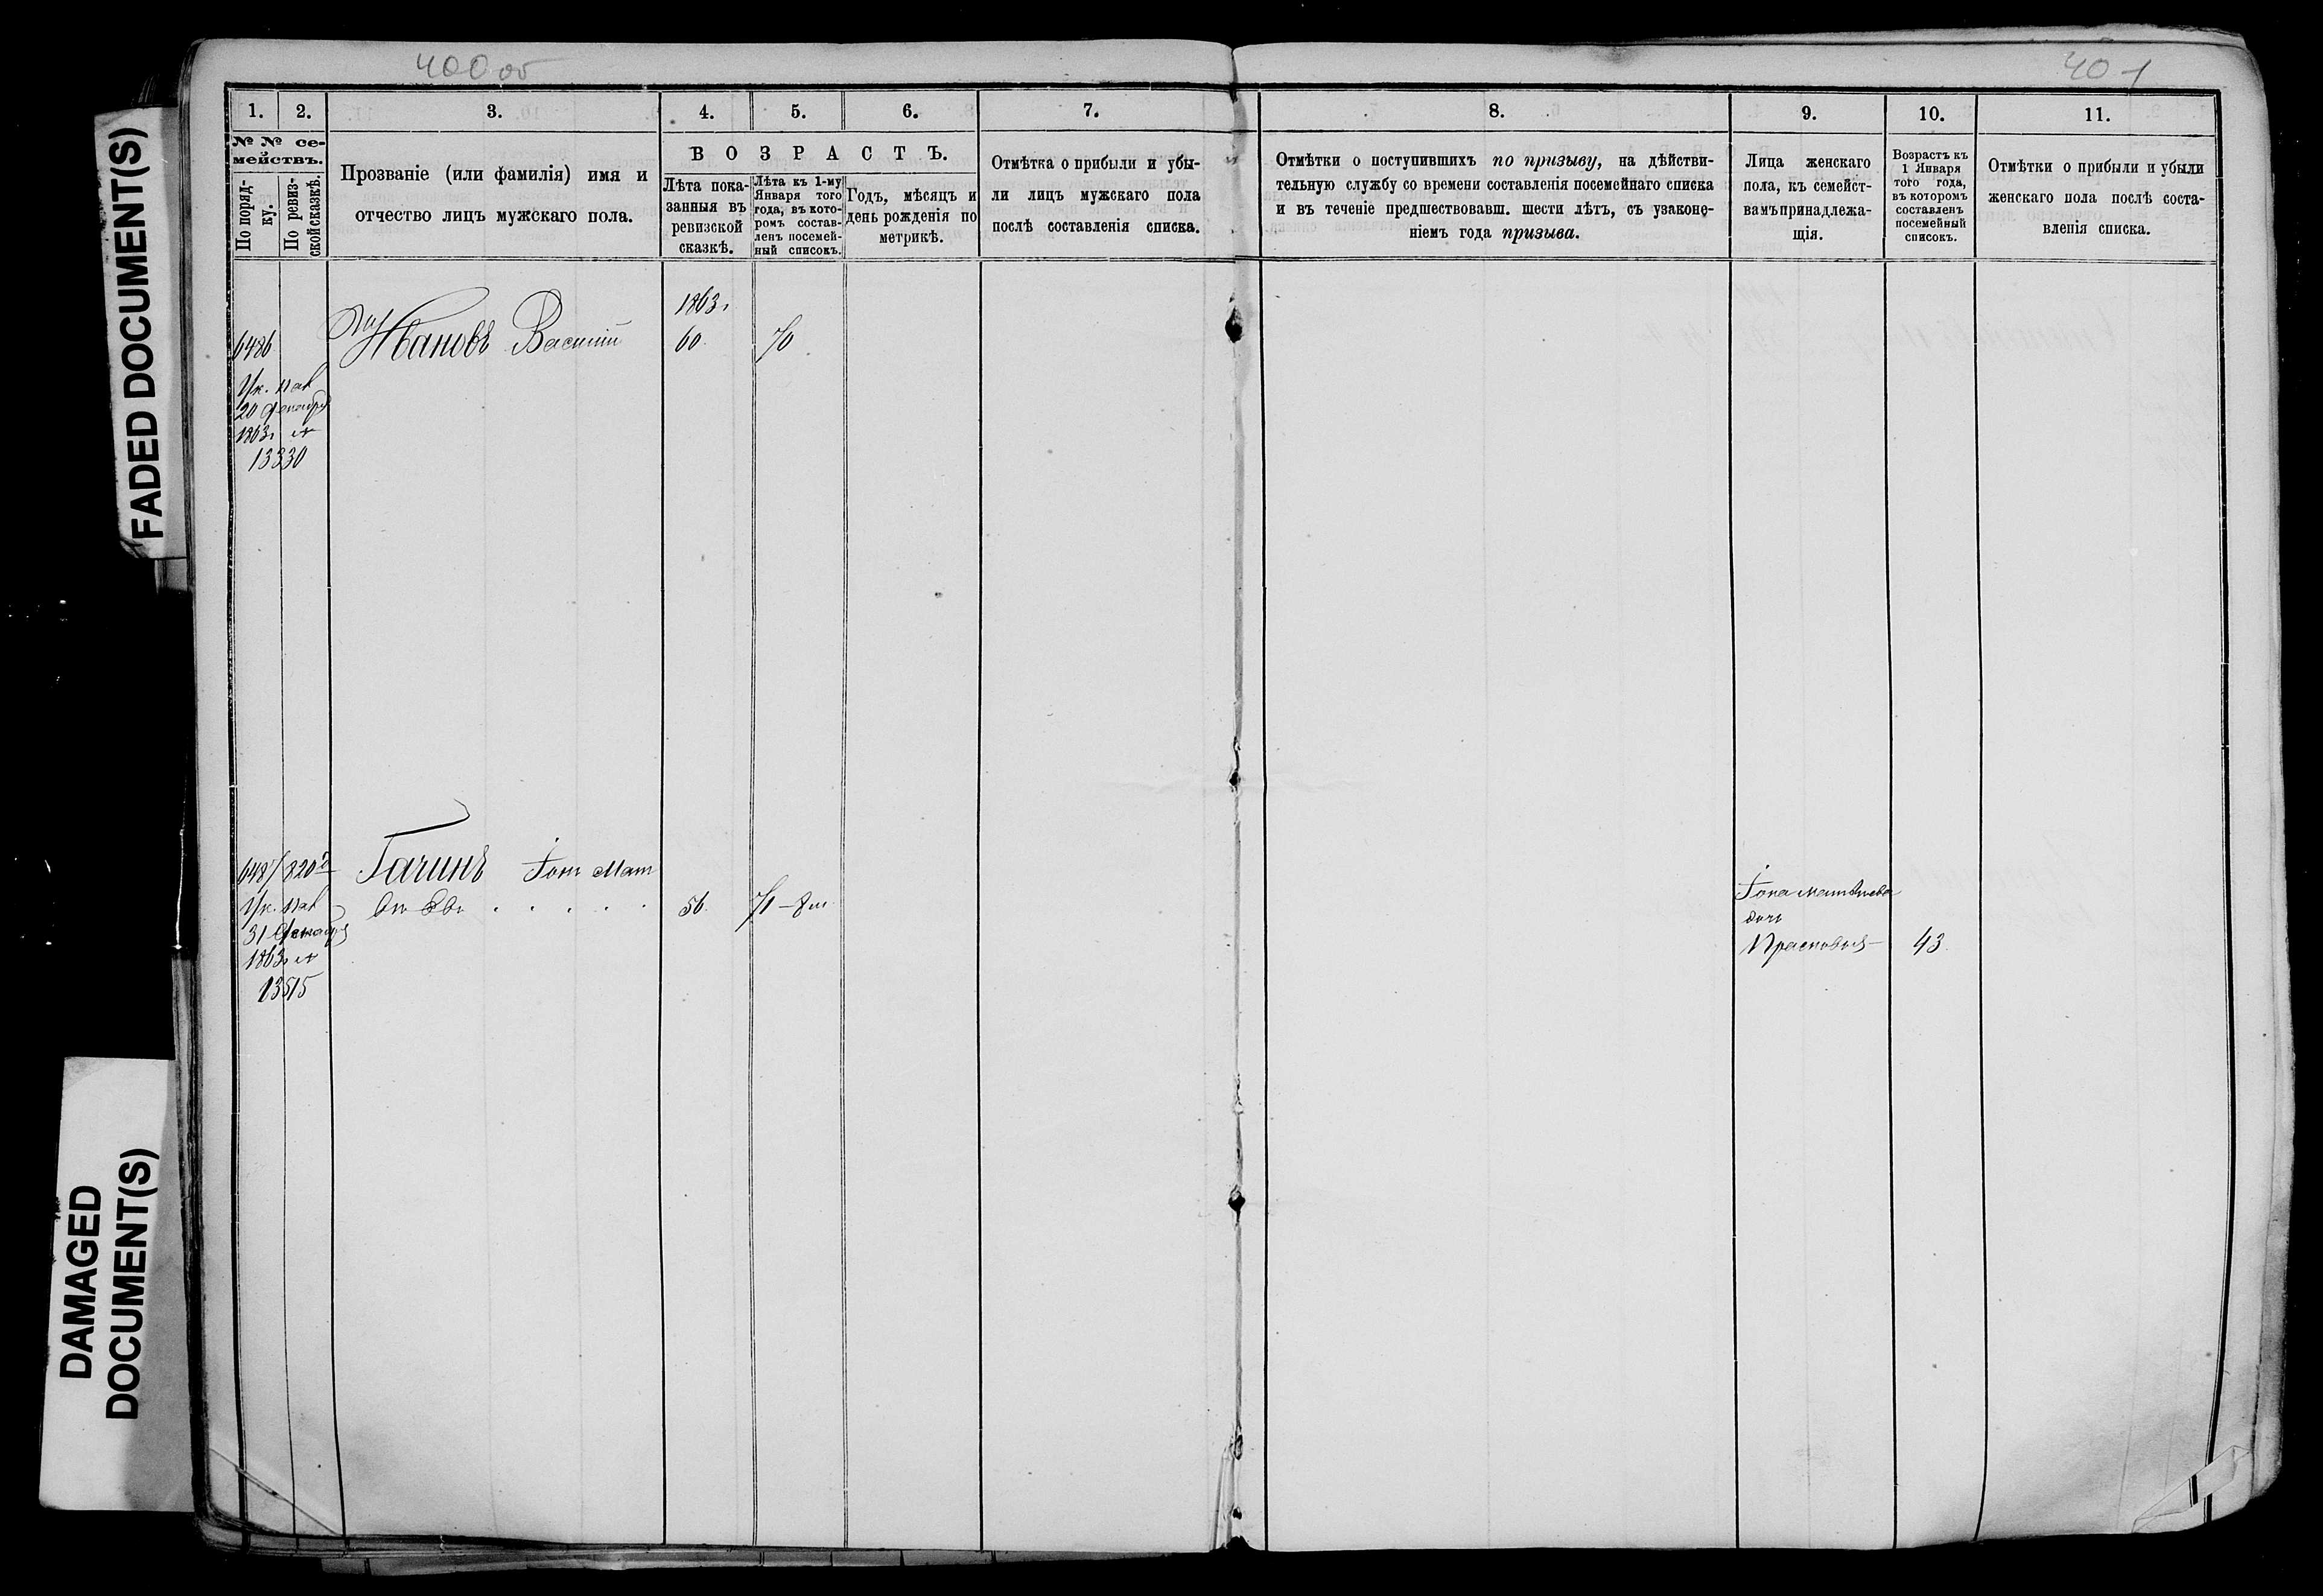 400 об
401
FADED DOCUMENT(S)
DAMAGED
DOCUMENT(S)
1. 2. 3. 4. 5. 6. 7. 8. 9. 10. 11.
№ № се-
мействъ.
По поряд-
ку.
По ревиз-
ской сказкѣ.
Прозваніе (или фамилія) имя и
отчество лицъ мужскаго пола.
ВОЗРАСТЪ.
Лѣта пока-
занныя въ
ревизской
сказкѣ.
Лѣта къ 1-му
Января того
года, въ кото-
ромъ состав-
ленъ посемей-
ный списокъ.
Годъ, мѣсяцъ и
день рожденія по
метрикѣ.
Отмѣтка о прибыли и убы-
ли лицъ мужскаго пола
послѣ составленія списка.
Отмѣтки о поступившихъ по призыву, на дѣйстви-
тельную службу со времени составленія посемейнаго списка
и въ теченіе предшествовавш. шести лѣтъ, съ узаконе-
ніемъ года призыва.
Лица женскаго
пола, къ семейст-
вамъ принадлежа-
щія.
Возрастъ къ
1 Января
того года,
въ которомъ
составленъ
посемейный
списокъ.
Отмѣтки о прибыли и убыли
женскаго пола послѣ соста-
вленія списка.
1863 г
6486 Ивановъ Василій 60 70
Ук. пал
20 Декабря
1863 г №
13330
6487 820 Гачинъ Іона Мат
Ук. пал 56 71
31 Декабря
1863 г №
13515
Іона Матвѣева
дочь
Прасковья 43